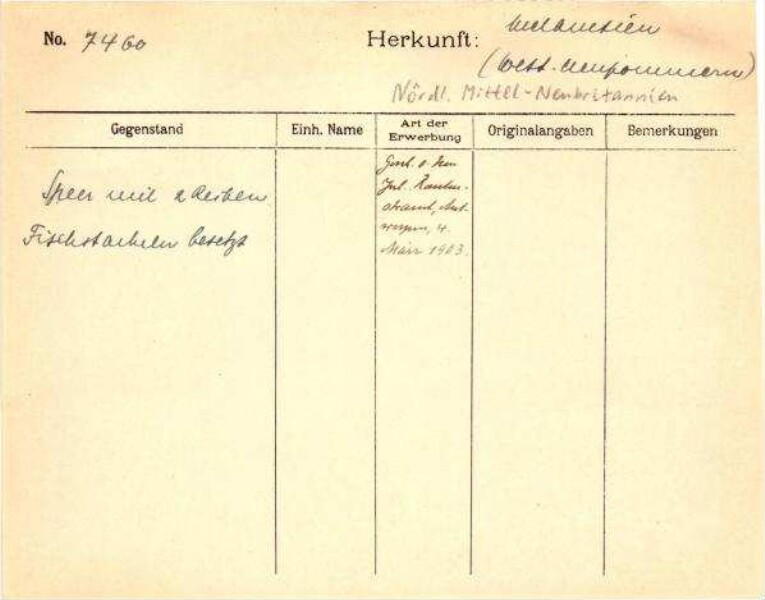 No. 7460
Herkunft: Melanesien
(West-Neupommern)
Nördl. Mittel-Neubritannien
Gegenstand Einh. Name Art der Erwerbung Originalangaben Bemerkungen
Speer mit 2 Reihen
Fischstacheln besetzt
Gesch. v. Herrn
Jul. Rauten-
strauch, Ant-
werpen, 4.
März 1903.